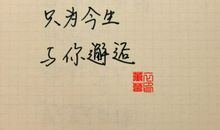 只为今生
与你邂逅